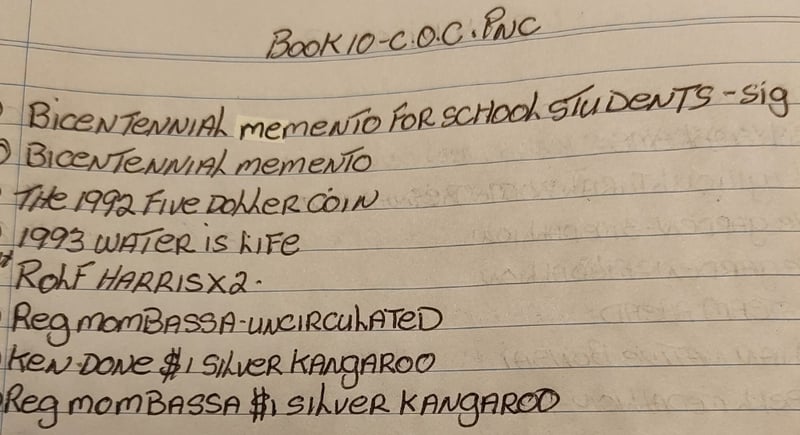 BOOK 10-C.O.C. PNC
BiCENTENNIAL mEmENTO FOR SCHOOL STUDENTS - Sig
BiCENTENNIAL mEmENTO
THE 1992 FIVE DOLLER COIN
1993 WATER iS LIFE
ROLF HARRIS X2.
Reg momBASSA-UNCIRCULATED
KEN-DONE $1 SILVER KANGAROO
Reg momBASSA $1 SILVER KANGAROO